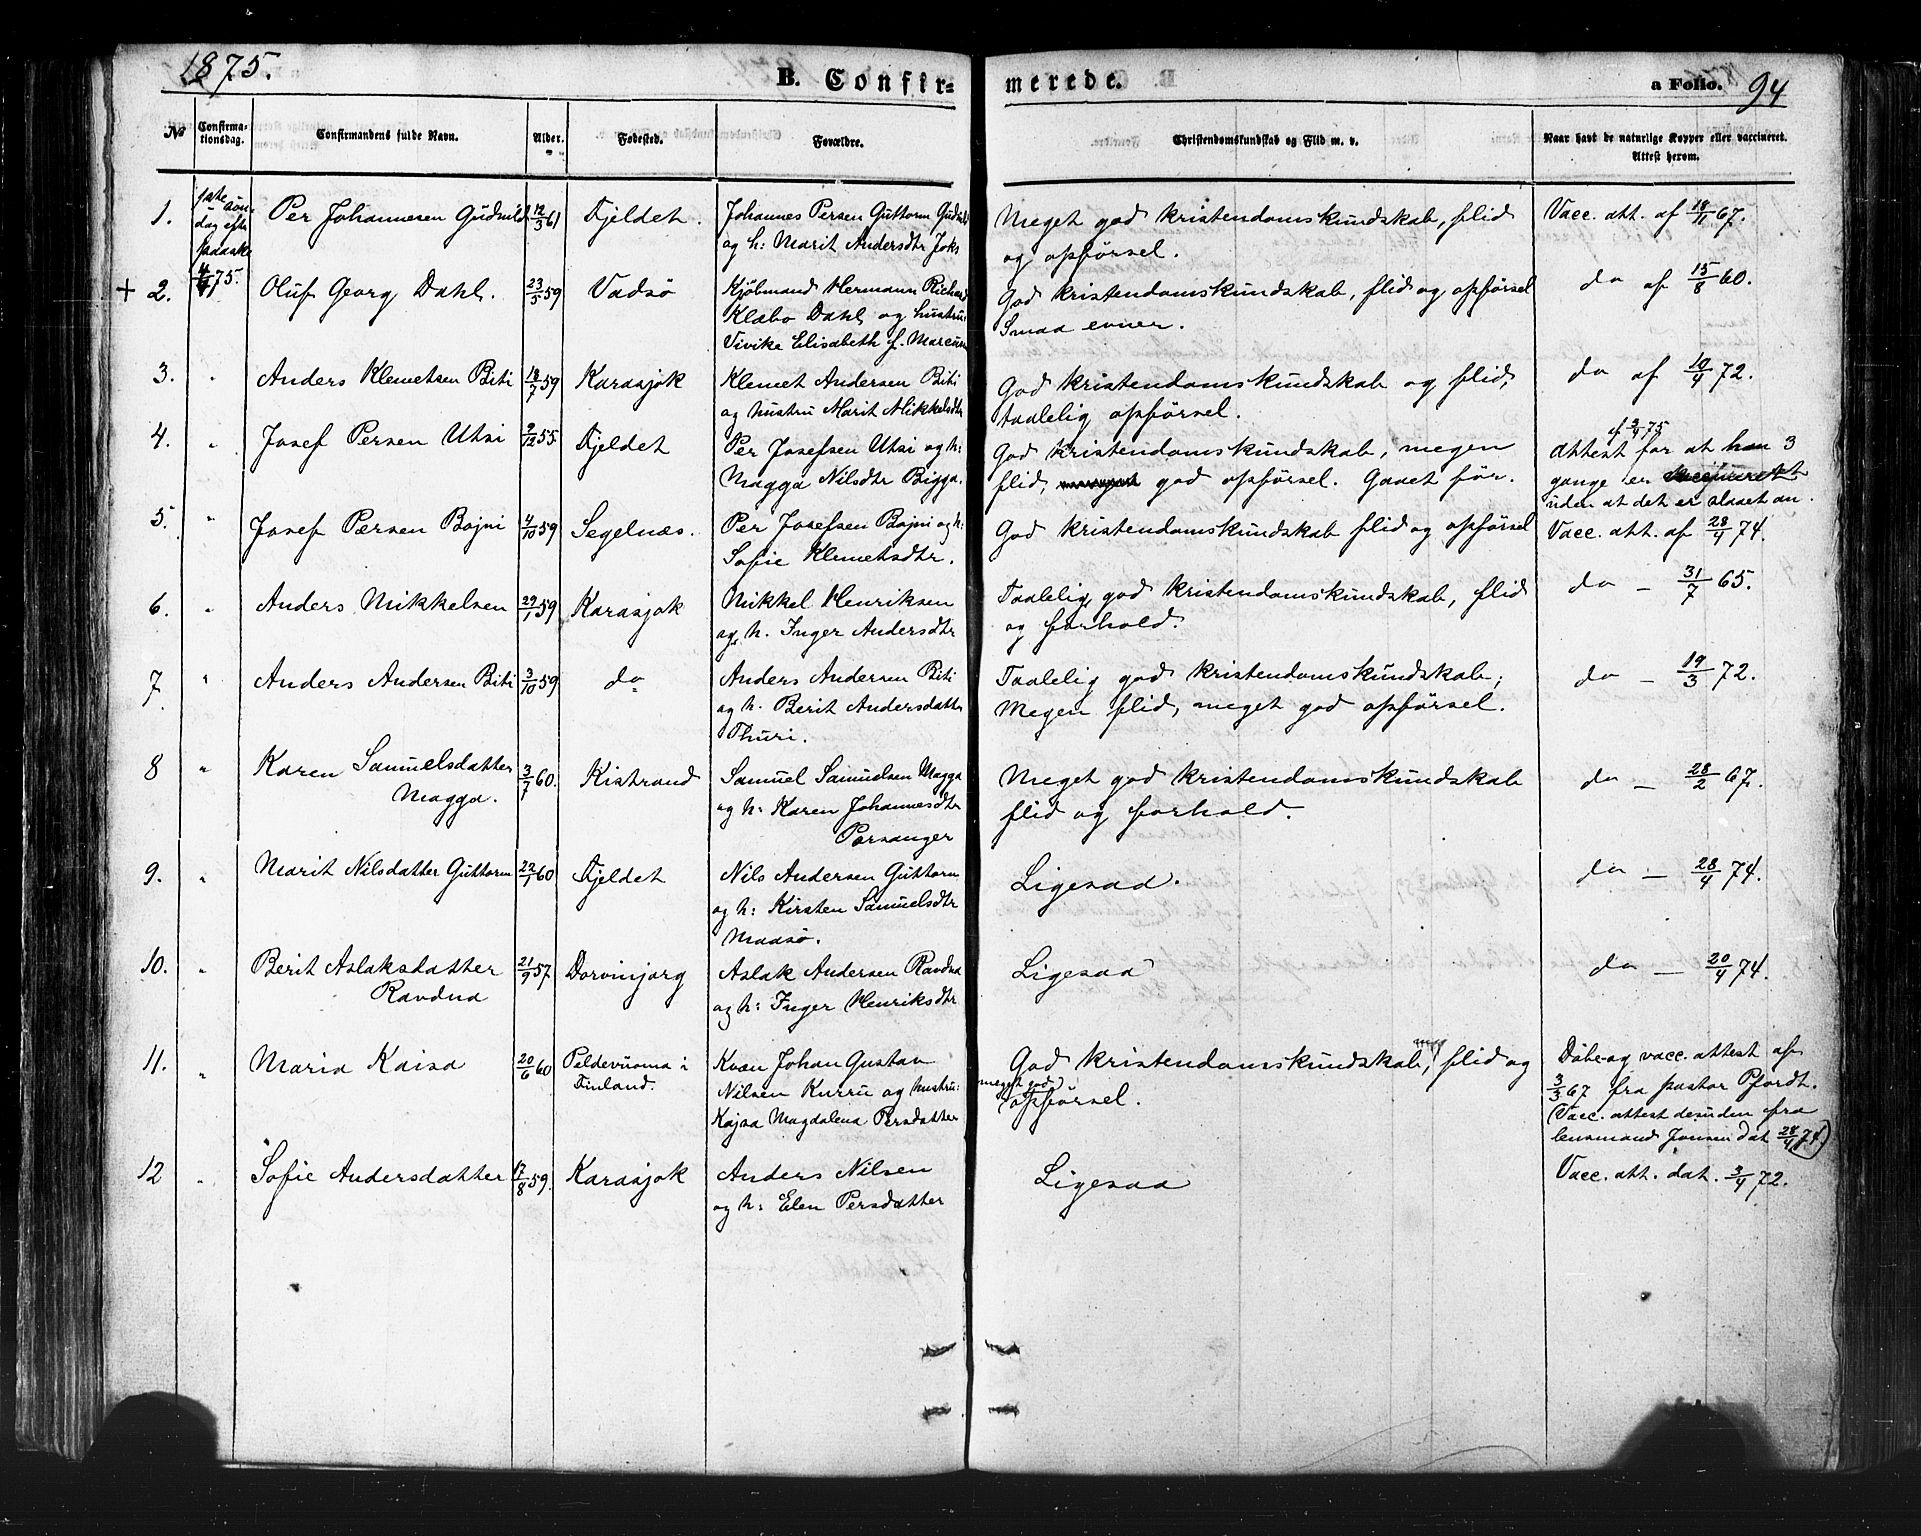 1875.
B. Confirmerede.
a Folio. 94
No
Confirmationsdag.
Confirmandens fulde Navn.
Alder.
Fødested.
Forældre.
Christendomskundskab og Flid m. v.
Naar havt de naturlige Kopper eller vaccineret. Attest herom.
1. 1ste søndag efter paaske 4/4 75. Per Johannesen Gudmild 12/3 61 Fjeldet. Johannes Persen Guttorm
og h: Marit Andersdtr Joks
Meget god kristendomskundskab, flid
og opførsel.
Vacc. att. af 18/11 67.
+ 2. Oluf Georg Dahl. 23/5 59 Vadsø Kjøbmand Hermann Richard
Klæbo Dahl og hustru:
Vivike Elisabeth f. Marcussen
God kristendomskundskab, flid og opførsel
Smaa evner.
do af 15/8 60.
3. " Anders Klemetsen Biti 18/7 59 Karasjok Klemet Andersen Biti
og hustru Marit Mikkelsdtr
God kristendomskundskab og flid,
taalelig opførsel.
do af 10/4 72.
4. " Josef Persen Utsi 9/12 55 Fjeldet Per Josefsen Utsi og h:
Magga Nilsdtr Bigga.
God kristendomskundskab, megen
flid, god opførsel. Gaaet før.
af 2/4 75
Attest for at han 3
gange er vaccineret
uden at det er slaaet an.
5. " Josef Persen Bojni 4/10 59 Segelnæs. Per Josefsen Bojni og h:
Sofie Klemetsdtr.
God kristendomskundskab flid og opførsel
Vacc. att. af 28/4 74.
6. " Anders Mikkelsen 29/1 59 Karasjok Mikkel Henriksen
og h. Inger Andersdtr
Taalelig god kristendomskundskab, flid
og forhold.
do – 31/7 65.
7. " Anders Andersen Biti 3/10 59 do Anders Andersen Biti
og h. Berit Andersdatter
Thuri.
Taalelig god kristendomskundskab;
Megen flid, meget god opførsel.
do – 19/3 72.
8 " Karen Samuelsdatter
Magga. 3/7 60. Kistrand Samuel Samuelsen Magga
og h: Karen Johannesdtr
Porsanger
Meget god kristendomskundskab
flid og forhold.
do – 28/2 67.
9. " Marit Nilsdatter Guttorm 22/1 60 Fjeldet Nils Andersen Guttorm
og h: Kirsten Samuelsdtr
Maasø.
Ligesaa.
do – 28/4 74.
10. " Berit Aslaksdatter
Ravdna 21/9 57. Dorvinjarg Aslak Andersen Ravdna
og h: Inger Henriksdtr
Ligesaa
do – 20/4 74.
11. " Maria Kaisa 20/6 60 Peldevuoma i
Finland. Kvæn Johan Gustav
Nilsen Kurru og hustru:
Kajsa Magdalena Persdatter
God kristendomskundskab, flid og
meget god
opførsel.
Døbe- og vacc. attest af
3/3 67 fra pastor Pfordt.
(Vacc. attest desuden fra
lensmand Jonsen dat 28/4 74)
12 " Sofie Andersdatter 17/8 59. Karasjok Anders Nilsen
og h: Elen Persdatter
Ligesaa
Vacc. att. dat. 3/4 72.